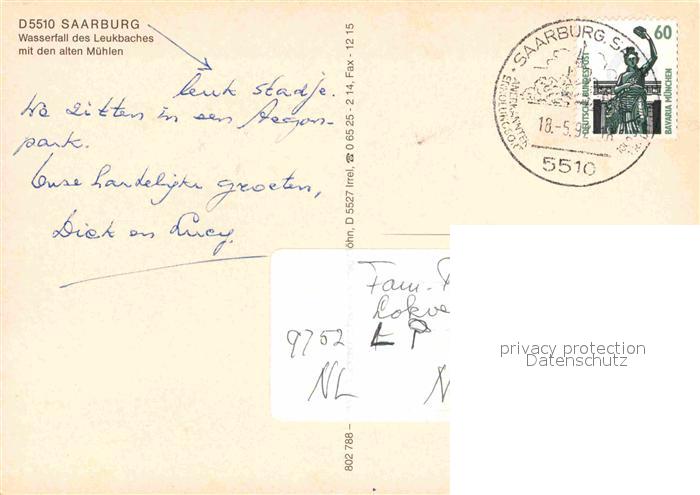 D5510 SAARBURG
Wasserfall des Leukbaches
mit den alten Mühlen
leuk stadje.
We zitten in een Aegon-
park.
Onze hartelijke groeten,
Dick en Lucy.
802 788 – öhn, D 5527 Irrel, ☎ 0 65 25 - 2 14, Fax - 12 15
SAARBURG, S
ANERKANNTER
ERHOLUNGSORT
18.-5.9
5510
60
DEUTSCHE BUNDESPOST
BAVARIA MÜNCHEN
Fam.
9752
NL
N
privacy protection
Datenschutz